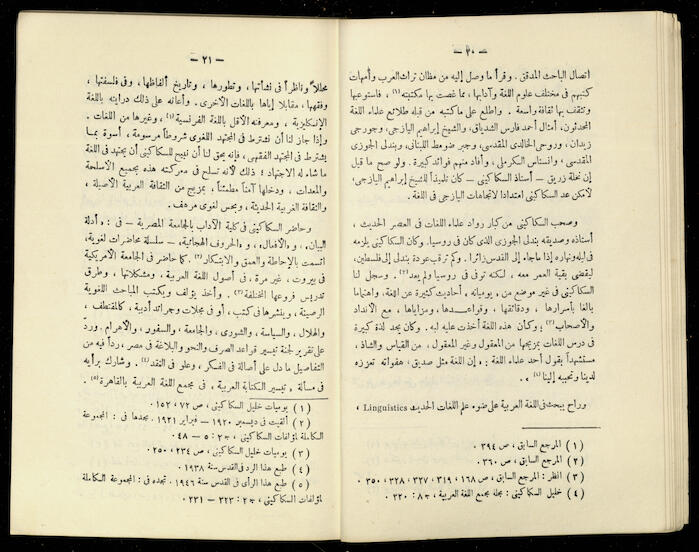 — ٢٠ —
اتصال الباحث المدقق . وقرأ ما وصل إليه من مظان تراث العرب وأمهات
كتبهم فى مختلف علوم اللغة وآدابها ، مما غصت بها مكتبته (١) ، فاستوعبها
وتثقف بها ثقافة واسعة . واطلع على ما كتبه من قبله طلائع علماء اللغة
المحدثون ، أمثال أحمد فارس الشدياق ، والشيخ إبراهيم اليازجى ، وجورجى
زيدان ، وروحى الخالدى المقدسى ، وجبر ضومط اللبنانى ، وبندلى الجوزى
المقدسى ، وانستاس الكرملى ، وأفاد منهم فوائد كبيرة . ولو صح ما قيل
إن نخلة زريق — أستاذ السكاكينى — كان تلميذاً للشيخ إبراهيم اليازجى ،
لأمكن عد السكاكينى امتدادا لاتجاهات اليازجى فى اللغة .
وصحب السكاكينى من كبار رواد علماء اللغات فى العصر الحديث ،
أستاذه وصديقه بندلى الجوزى الذى كان فى روسيا . وكان السكاكينى يلزمه
فى ليله ونهاره إذا ما جاء إلى القدس زائرا . وكم ترقب عودة بندلى إلى فلسطين ،
ليقضى بقية العمر معه ، لكنه توفى فى روسيا ولم يعد (٢) . وسجل لنا
السكاكينى فى غير موضع من « يومياته » أحاديث كثيرة عن اللغة ، واهتماما
بالغا بأسرارها ، ودقائقها ، وقواعدها ، ومزاياها ، مع الأنداد
والأصحاب (٣) ؛ وكأن هذه اللغة أخذت عليه لبه . وكان يجد لذة كبيرة
فى درس اللغات بمزيجها من المعقول وغير المعقول ، من القياس والشاذ ،
مستشهداً بقول أحد علماء اللغة : « إن اللغة مثل صديق ، هفواته تعززه
لدينا وتحببه إلينا (٤) » .
وراح يبحث فى اللغة العربية على ضوء علم اللغات الحديث Linguistics ،
(١) المرجع السابق ، ص ٣٩٤ .
(٢) المرجع السابق ، ص ٣٦٠ .
(٣) انظر : المرجع السابق ، ص ١٦٨ ، ٣١٩ ، ٣٢٧ ، ٣٢٨ ، ٣٥٠ .
(٤) خليل السكاكينى : مجلة مجمع اللغة العربية ، جـ ٨ : ٣٢٠ .
— ٢١ —
محللاً وناظراً فى نشأتها ، وتطورها ، وتاريخ ألفاظها ، وفى فلسفتها ،
وفقهها ، مقابلا إياها باللغات الأخرى . وأعانه على ذلك درايته باللغة
الإنكليزية ، ومعرفته الأقل باللغة الفرنسية (١) ، وغيرها من اللغات .
وإذا جاز لنا أن نشترط فى المجتهد اللغوى شروطاً مرسومة ، أسوة بما
يشترط فى المجتهد الفقهى ، فإنه يحق لنا أن نبيح للسكاكينى أن يجتهد فى اللغة
ما شاء له الاجتهاد ؛ ذلك لأنه تسلح فى معركته هذه بجميع الأسلحة
والمعدات ، ودخلها آمناً مطمئناً ، بمزيج من الثقافة العربية الأصيلة ،
والثقافة الغربية الحديثة ، وبحس لغوى مرهف .
وحاضر السكاكينى فى كلية الآداب بالجامعة المصرية — فى : « أدلة
البيان » ، و « الأفعال » ، و « الحروف الهجائية » — سلسلة محاضرات لغوية ،
اتسمت بالإحاطة والعمق والابتكار (٢) . كما حاضر فى الجامعة الأمريكية
فى بيروت ، غير مرة ، فى أصول اللغة العربية ، ومشكلاتها ، وطرق
تدريس فروعها المختلفة (٣) . وأخذ يؤلف ويكتب المباحث اللغوية
الرصينة ، وينشرها فى كتب ، أو فى مجلات وجرائد أدبية ، كالمقتطف ،
والهلال ، والسياسة ، والشورى ، والجامعة ، والسفور ، والأهرام . وردّ
على تقرير لجنة تيسير قواعد الصرف والنحو والبلاغة فى مصر ، رداً فيه من
التفاصيل ما دل على أصالة فى الفكر ، وعلو فى النقد (٤) . وشارك برأيه
فى مسألة « تيسير الكتابة العربية » ، فى مجمع اللغة العربية بالقاهرة (٥) .
(١) يوميات خليل السكاكينى ، ص ٧٢ ، ١٥٢ .
(٢) ألقيت فى ديسمبر ١٩٢٠ — فبراير ١٩٢١ . تجدها فى : المجموعة
الكاملة لمؤلفات السكاكينى ، جـ ٢ : ٥ — ٤٨ .
(٣) يوميات خليل السكاكينى ، ص ٢٣٤ ، ٢٥٠ .
(٤) طبع هذا الرد فى القدس سنة ١٩٣٨ .
(٥) طبع هذا الرأى فى القدس سنة ١٩٤٦ . تجده فى : المجموعة الكاملة
لمؤلفات السكاكينى ، جـ ٢ : ٢٢٣ — ٢٣١ .